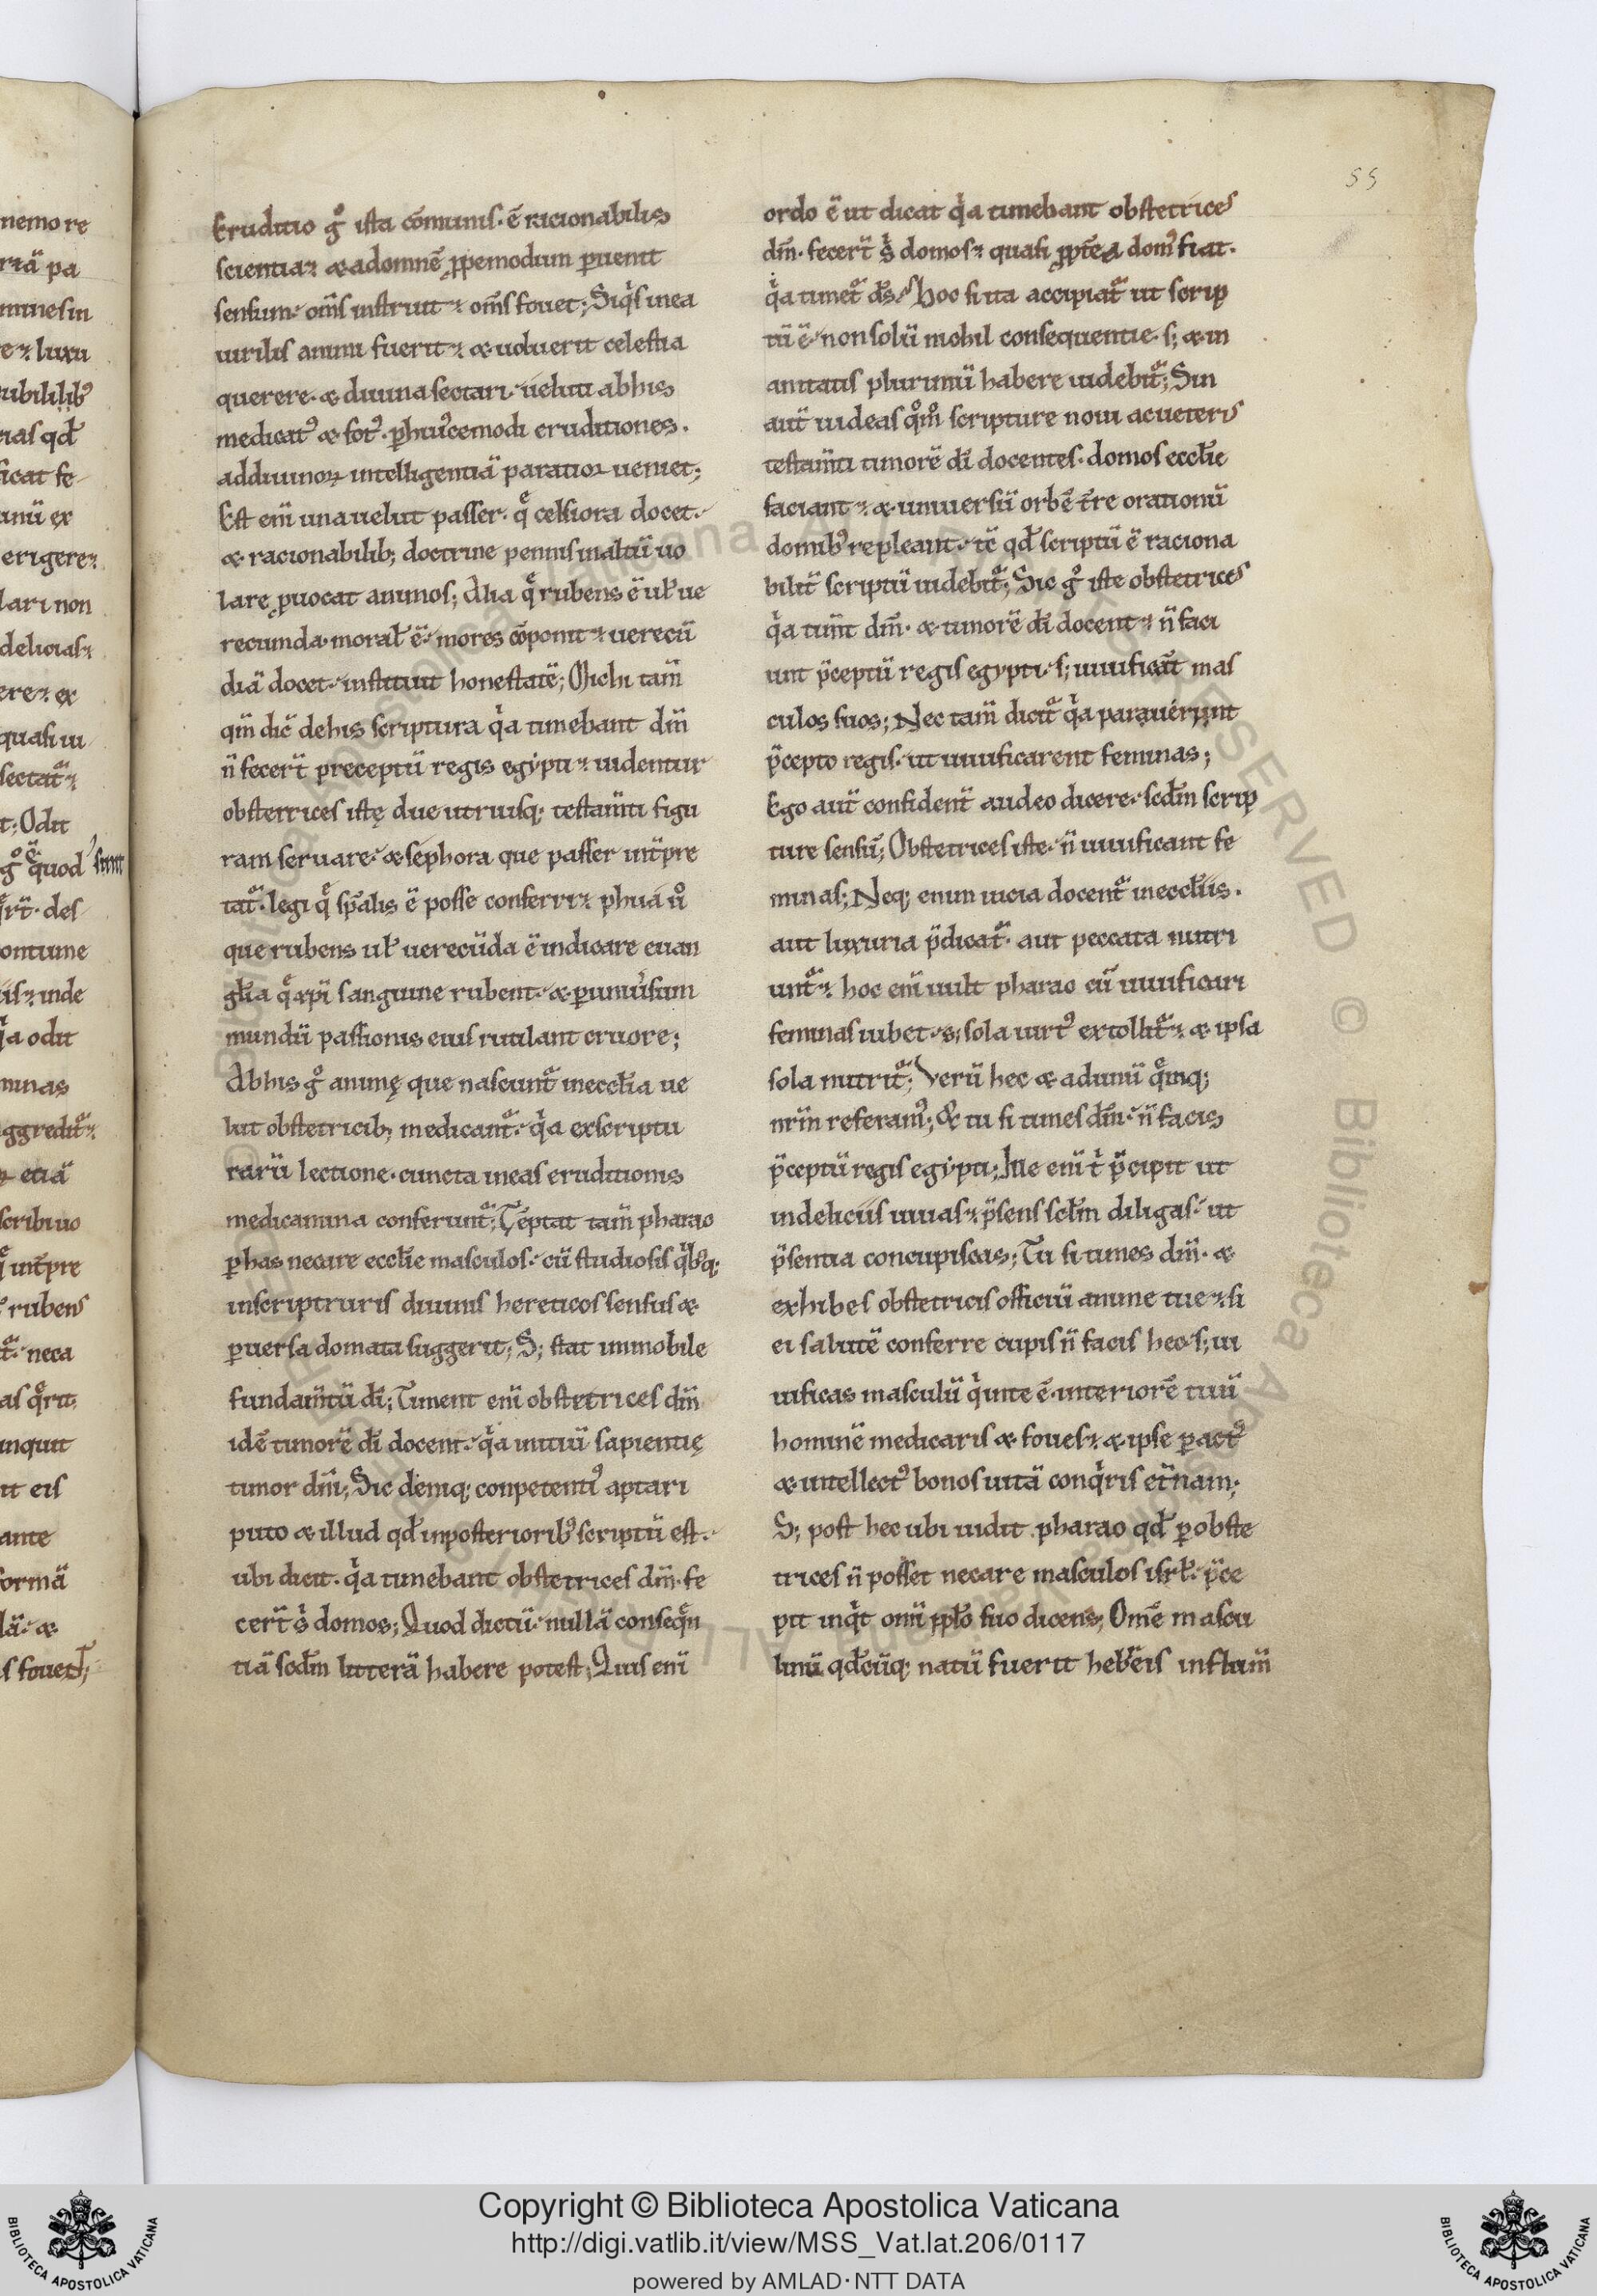 nemo re
rtā pa
mnes in
e⁊ luxu
ubilibꝰ
ras qđ
ficat fe
unū ex
erigere⁊
lari non
delicias⁊
ere⁊ ex
quasi ui
t; Odit
g̊ quod sunt
des
ontume
iis⁊ inde
q̇a odit
minas
ggredit᷑⁊
⁊ etiā
scribi uo
int̄pre
rubens
neca
as q̊rit
inquit
it eis
ante
formā
lā· ⁊
s fouet;
Eruditio g̊ ista cōmunis· ē racionabilis
scientia⁊ ⁊ ad omnē ꝓpemodum ꝑuenit
sensum· om̄s instruit⁊ om̄s fouet; Siq̇s in ea
uirilis animi fuerit⁊ ⁊ uoluerit celestia
querere· ⁊ diuina sectari· ueluti ab his
medicatꝰ ⁊ fotꝰ· ꝑ huiꝰcemodi eruditiones·
ad diuinoꝝ intelligentiā paratior ueniet;
Est eni̅ una uelut passer· q̄ celsiora docet·
⁊ racionabilib; doctrine pennis in altū uo
lare ꝓuocat animos; Alia q̄ rubens ē uł ue
recunda· morał ē· mores cōponit⁊ uerecū
diā docet· instituit honestatē; Michi tam̄
qm̄ dic̄ de his scriptura q̇a timebant dm̄
n̄ fecer̄t preceptū regis egypti⁊ uidentur
obstetrices istę due utriusq; testam̄ti figu
ram seruare· ⁊ sephora que passer int̄pre
tat᷑· legi q̄ sp̄alis ē posse conferri⁊ phua u̇o
que rubens uł uerecūda ē indicare euan
gł̄ia q̄ xp̄i sanguine rubent· ⁊ ꝑ uniu̇sum
mundū passionis eius rutilant cruore;
Ab his g̊ animę que nascunt᷑ in eccł̄ia ue
lut obstetricib; medicant᷑· q̇a ex scriptu
rarū lectione· cuncta in eas eruditionis
medicamina conferunt᷑; Tēptat tam̄ pharao
ꝑ has necare eccł̄ie masculos· cū studiosis q̇bꝰq;
in scriptruris diuinis hereticos sensus ⁊
ꝑuersa domata suggerit; S; stat immobile
fundam̄tū dī; Timent eni̅ obstetrices dm̄
idē timorē dī docent· q̇a initiū sapientię
timor dm̄i; Sic deniq; conpetentiꝰ aptari
puto ⁊ illud qđ in posteriorib; scriptū est·
ubi dicit· q̇a timebant obstetrices dm̄· fe
cer̄t s̊ domos; Quod dictū· nullā conseq̄n
tiā scđm litterā habere potest; Quis eni̅
55
ordo ē ut dicat q̇a timebant obstetrices
dm̄· fecer̄t s̊ domos⁊ quasi ꝓpt̄ea domꝰ fiat·
q̇a timet᷑ ds̄· Hoc si ita accipiat᷑ ut scrip
tū ē· non solū nichil consequentie· s; ⁊ in
anitatis plurimū habere uidebit᷑; Sin
aut̄ uideas q̊m̊ scripture noui ac ueteris
testam̄ti timorē dī docentes· domos eccł̄ie
faciant⁊ ⁊ uniuersū orbē t̄re orationū
domibꝰ repleant· tc̄ qđ scriptū ē raciona
bilit̄ scriptū uidebit᷑; Sic g̊ iste obstetrices
q̇a tim̄t dm̄· ⁊ timorē dī docent⁊ n̄ faci
unt p̄ceptū regis egypti· s; uiuificāt mas
culos suos; Nec tam̄ dicit᷑ q̇a paruerunt
p̄cepto regis· ut uiuificarent feminas;
Ego aut̄ confident̄ audeo dicere· scđm scrip
ture sensū; Obstetrices iste· n̄ uiuificant fe
minas; Neq; enim uicia docent᷑ in eccł̄iis·
aut luxuria p̄dicat᷑· aut peccata nutri
unt᷑⁊ hoc eni̅ uult pharao cū uiuificari
feminas iubet· s; sola uirtꝰ extollit᷑⁊ ⁊ ipsa
sola nutrit᷑; Verū hec ⁊ ad unū q̊mq;
nr̄m referamꝰ; & tu si times dm̄· n̄ facis
p̄ceptū regis egypti; Ille eni̅ t̊ p̄cipit ut
in deliciis uiuas⁊ p̄sens scł̄m diligas· ut
p̄sentia concupiscas; Tu si times dm̄· ⁊
exhibes obstetricis officiū anime tue⁊ si
ei salutē conferre cupis n̄ facis hec· s; ui
uificas masculū q̇ in te ē· interiorē tuū
hominē medicaris ⁊ foues⁊ ⁊ ipse ꝑ actꝰ
⁊ intellectꝰ bonos uitā conq̇ris et̄nam;
S; post hec ubi uidit pharao qđ ꝑ obste
trices n̄ posset necare masculos isrł· p̄ce
pit inq̇t omi̅ ppł̄o suo dicens; Omē mascu
linū qđcūq; natū fuerit hebr̄eis in flum̄
Copyright © Biblioteca Apostolica Vaticana
http://digi.vatlib.it/view/MSS_Vat.lat.206/0117
powered by AMLAD·NTT DATA
BIBLIOTECA APOSTOLICA VATICANA
BIBLIOTECA APOSTOLICA VATICANA